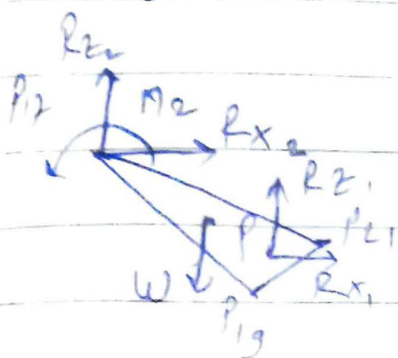 Rz2
P12 M2 Rx2
Rz1
P
W Rx1
P19